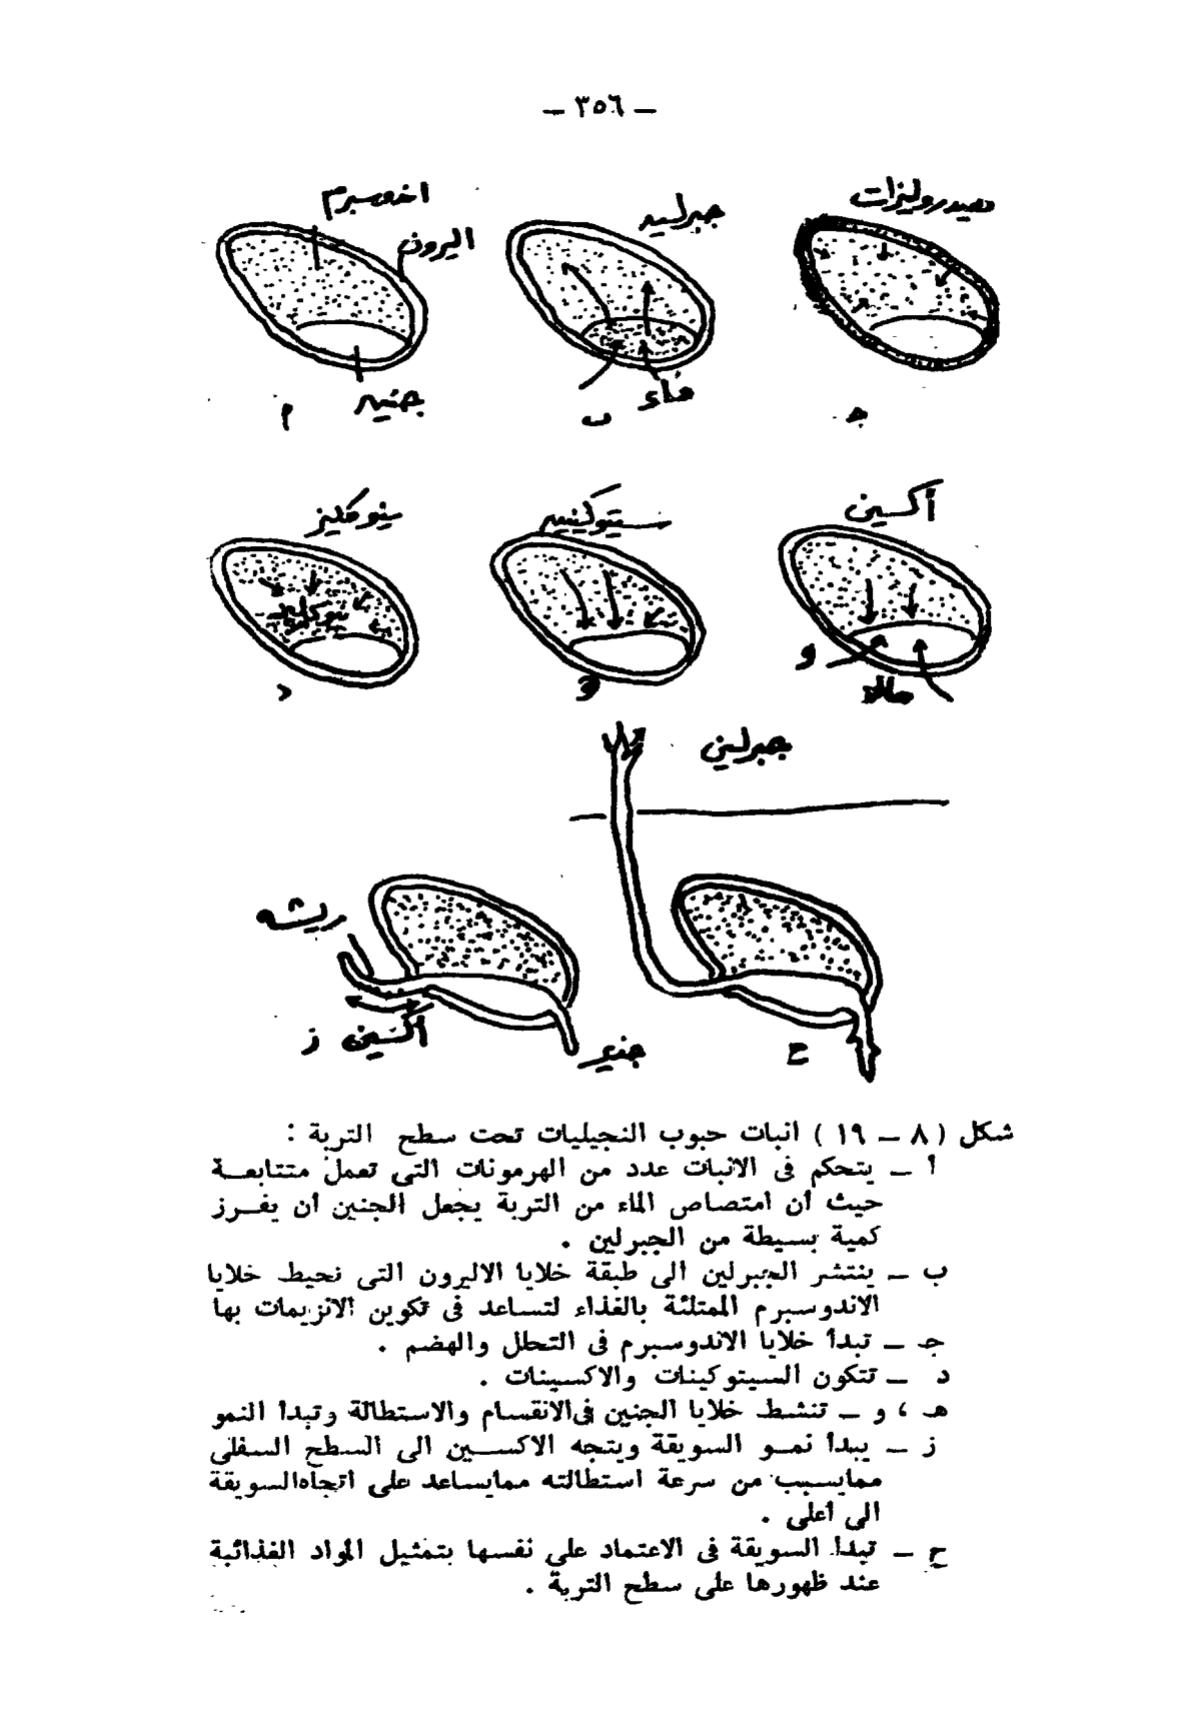 — ٣٥٦ —
اندوسبرم
اليرون
جنين
أ
جبرلين
ماء
ب
هيدروليزات
جـ
د
هـ
أكسين
و
جبرلين
ريشه
أكسين
ز
جذير
ح
شكل ( ٨ — ١٩ ) انبات حبوب النجيليات تحت سطح التربة :
أ — يتحكم فى الانبات عدد من الهرمونات التى تعمل متتابعــة
حيث أن امتصاص الماء من التربة يجعل الجنين أن يفــرز
كمية بسيطة من الجبرلين .
ب — ينتشر الجبرلين الى طبقة خلايا الاليرون التى تحيط خلايا
الاندوسبرم الممتلئة بالغذاء لتساعد فى تكوين الانزيمات بها
جـ — تبدأ خلايا الاندوسبرم فى التحلل والهضم .
د — تتكون السيتوكينات والاكسينات .
هـ ، و — تنشط خلايا الجنين فى الانقسام والاستطالة وتبدأ النمو
ز — يبدأ نمــو السويقة ويتجه الاكســين الى السطح السفلى
ممايســبب من سرعة استطالته ممايساعد على اتجاه السويقة
الى أعلى .
ح — تبدأ السويقة فى الاعتماد على نفسها بتمثيل المواد الغذائية
عند ظهورها على سطح التربة .